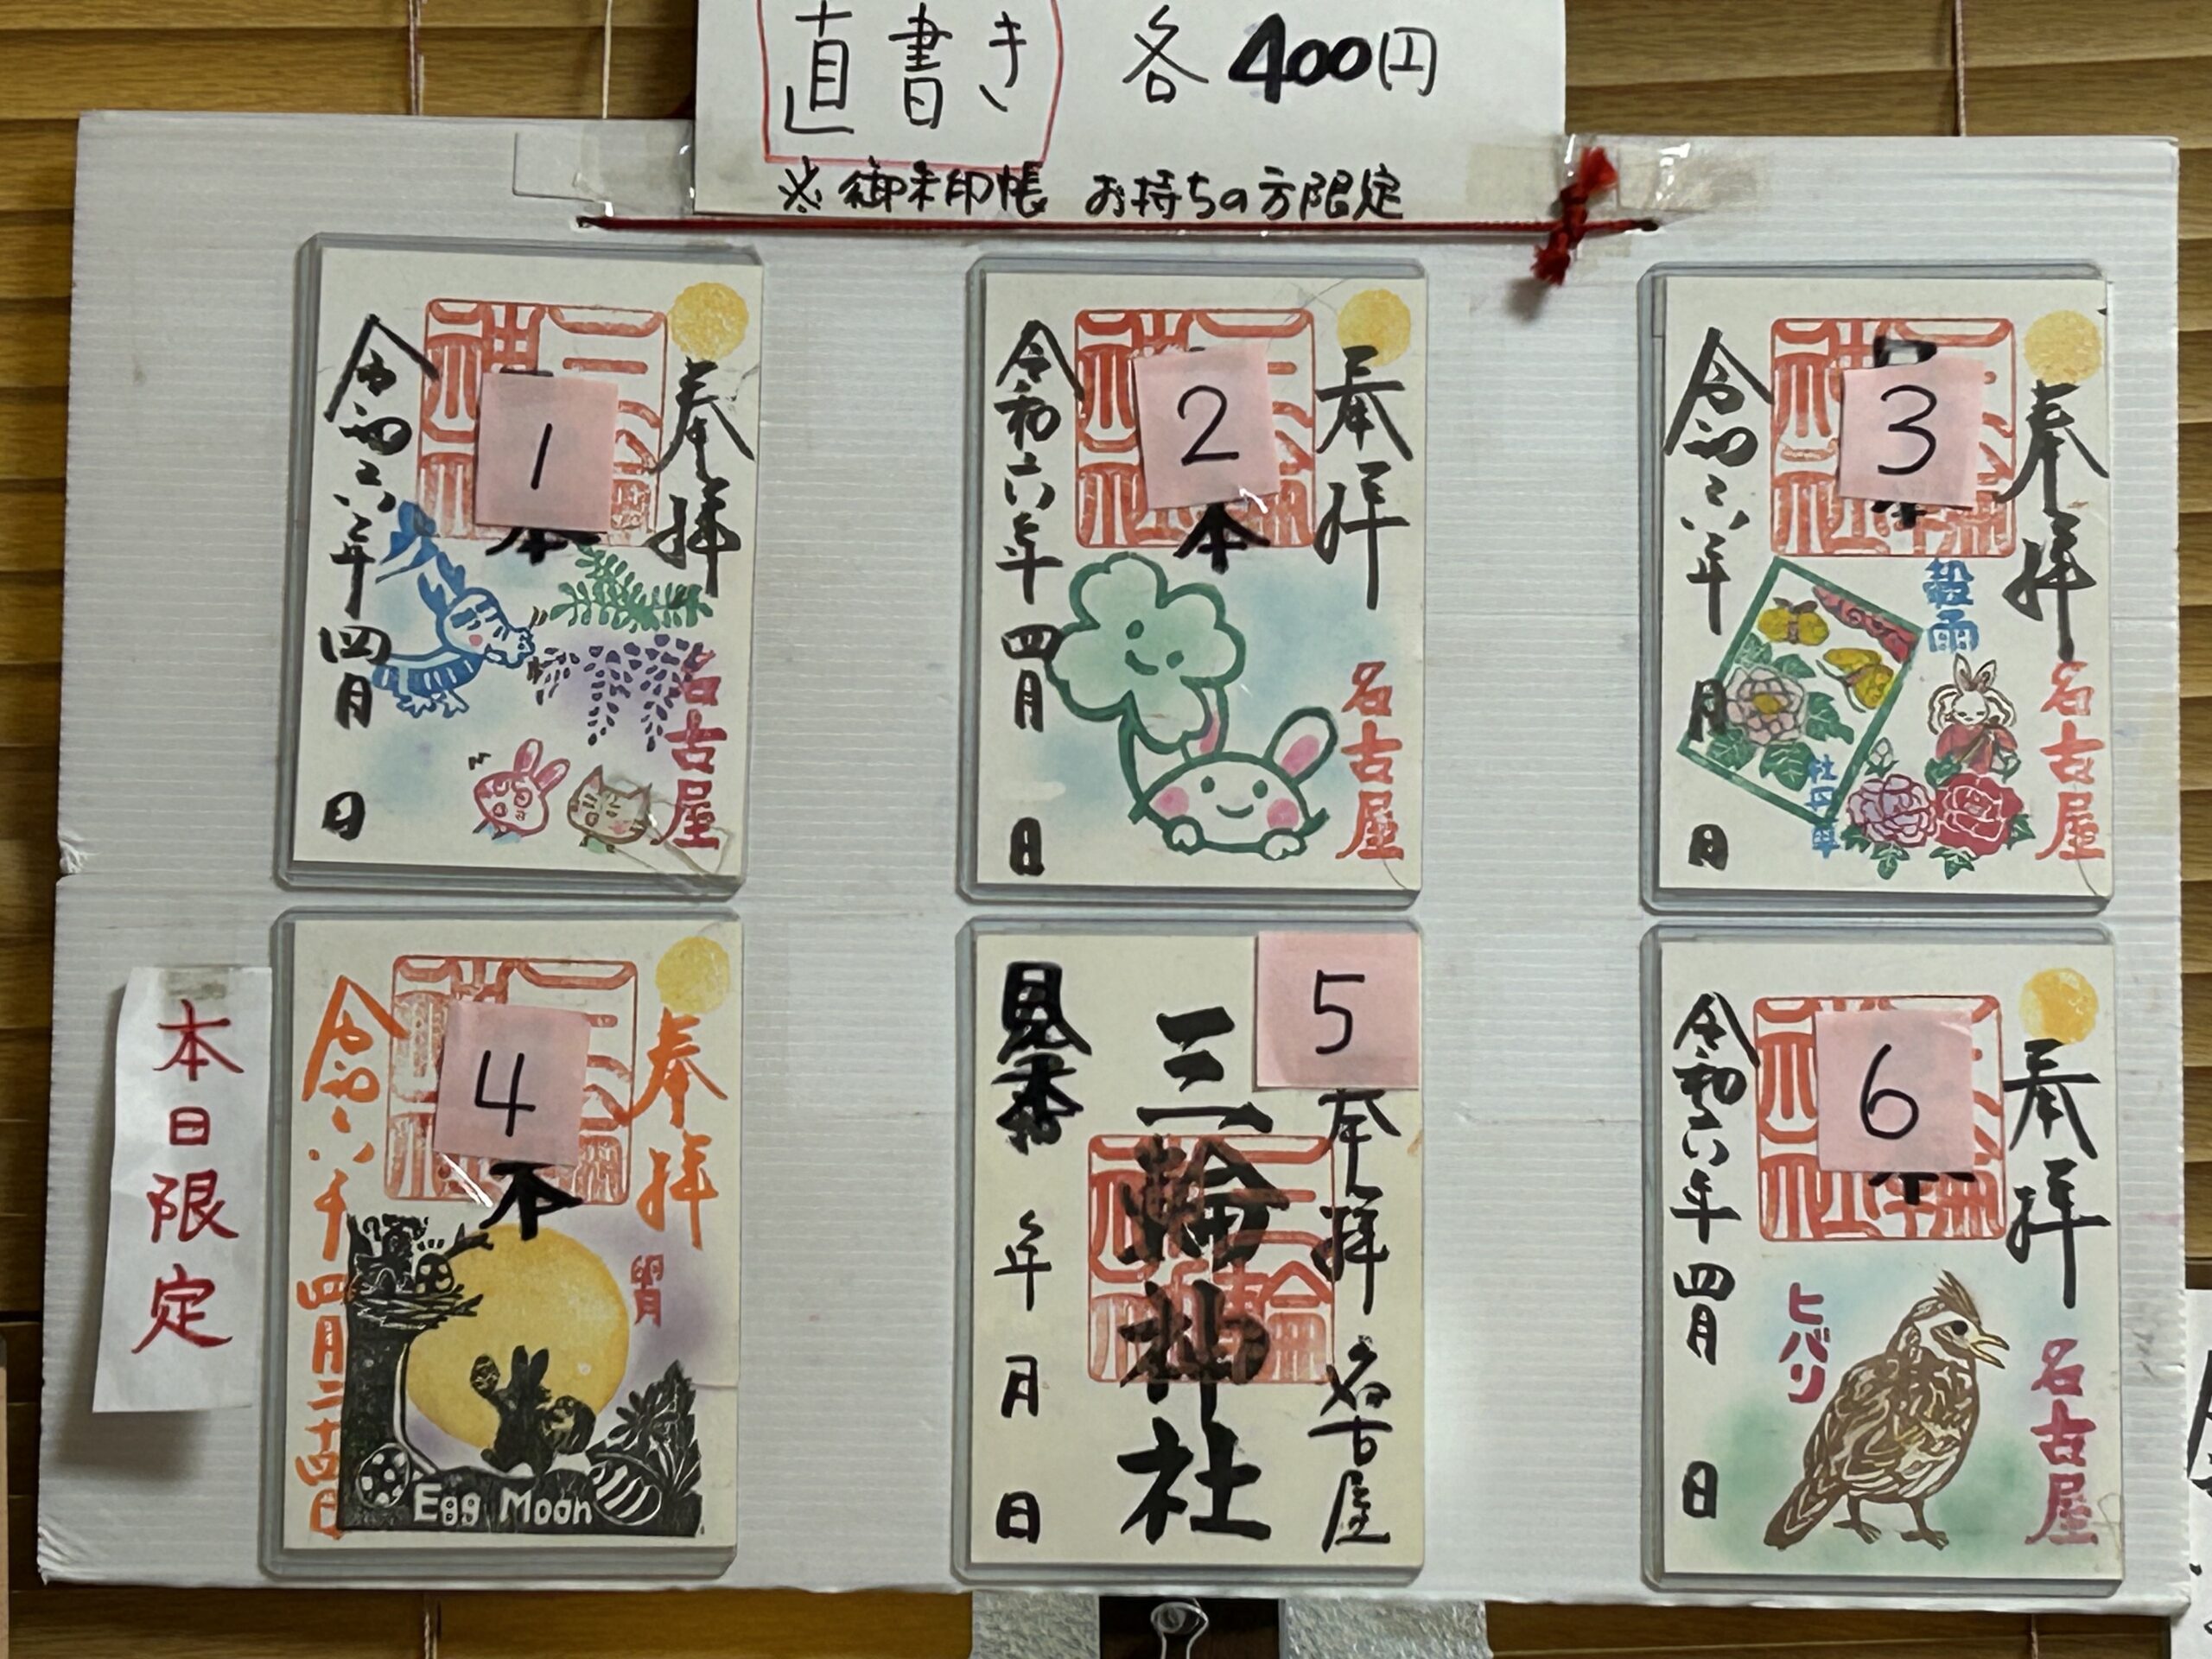 直書き 各400円
※御朱印帳 お持ちの方限定
1
奉拝
名古屋
本
令和六年四月 日
2
奉拝
名古屋
本
令和六年四月 日
3
奉拝
名古屋
穀雨
牡丹華
本
令和六年 月 日
本日限定
4
奉拝
卯月
本
令和六年四月二十四日
Egg Moon
5
奉拝 名古屋
三輪神社
見本
年 月 日
6
奉拝
名古屋
ヒバリ
令和六年四月 日